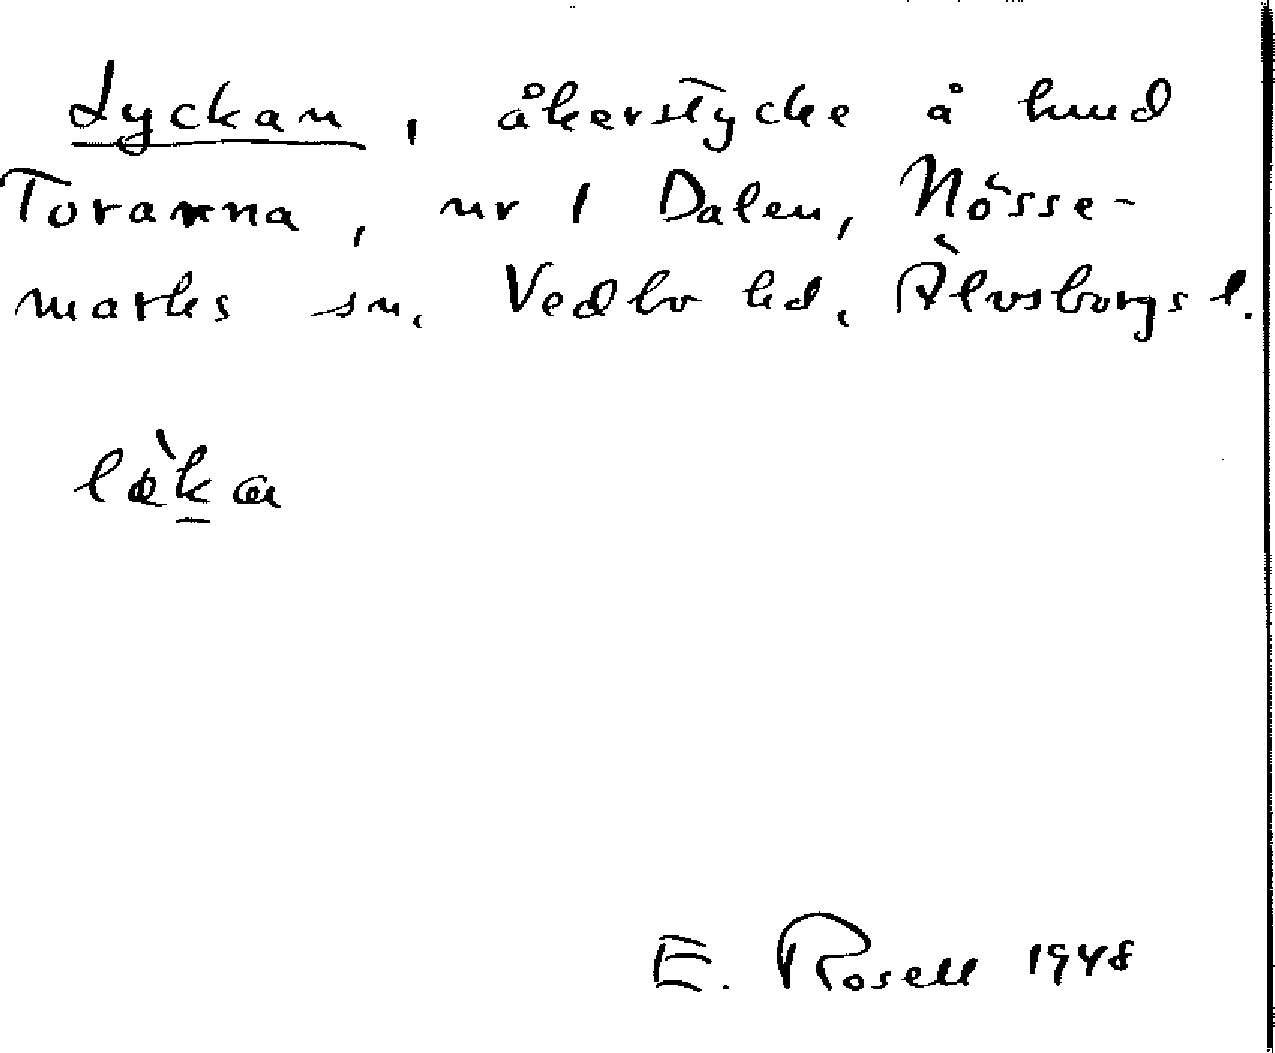 Lyckan, åkerstycke å hmd
Toranna, nr 1 Dalen, Nösse-
marks sn. Vedbo hd. Älvsborgs l.
E. Rosell 1948